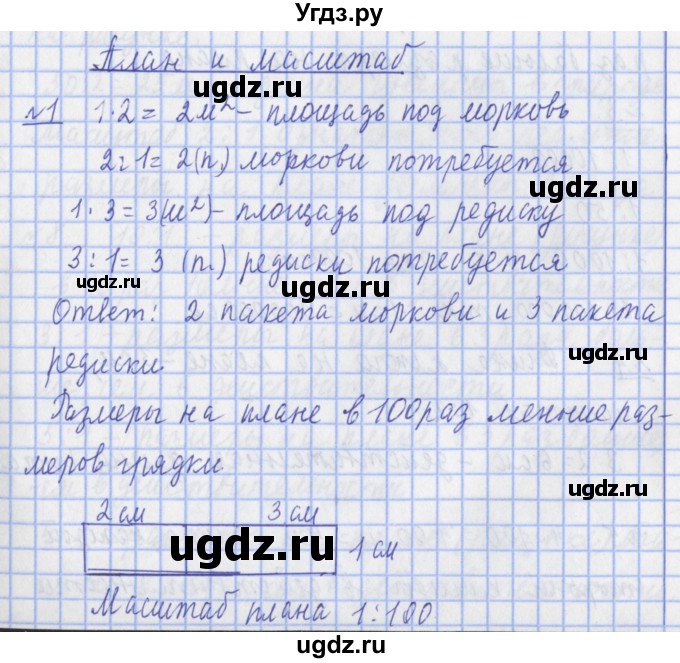 Угдз.ру
План и масштаб
№1 1·2= 2м²– площадь под морковь
2:1= 2(п.) моркови потребуется
1·3=3(м²)– площадь под редиску
3:1= 3 (п.) редиски потребуется
ugdz.ru ugdz.ru
Ответ: 2 пакета моркови и 3 пакета
редиски.
Размеры на плане в 100 раз меньше раз-
меров грядки
ugdz.ru
2 см 3 см
ugdz.ru 1 см
Масштаб плана 1:100
ugdz.ru